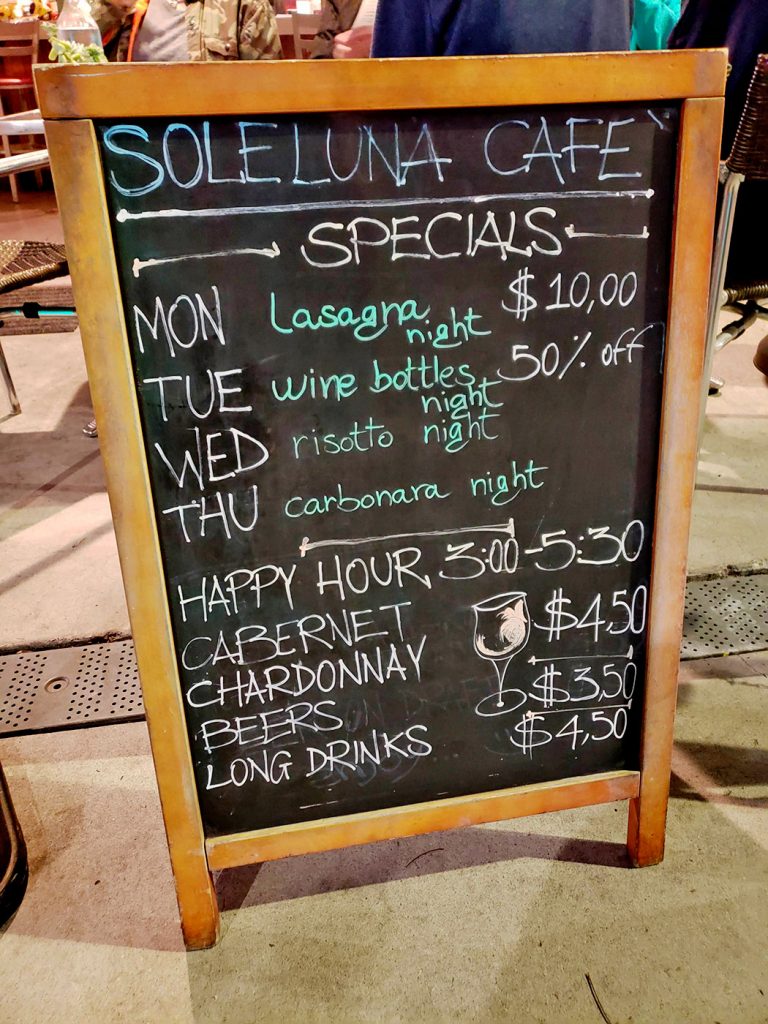 SOLELUNA CAFE`
SPECIALS
MON Lasagna night $10,00
TUE wine bottles night 50% off
WED risotto night
THU carbonara night
HAPPY HOUR 3:00-5:30
CABERNET $4,50
CHARDONNAY
BEERS $3,50
LONG DRINKS $4,50